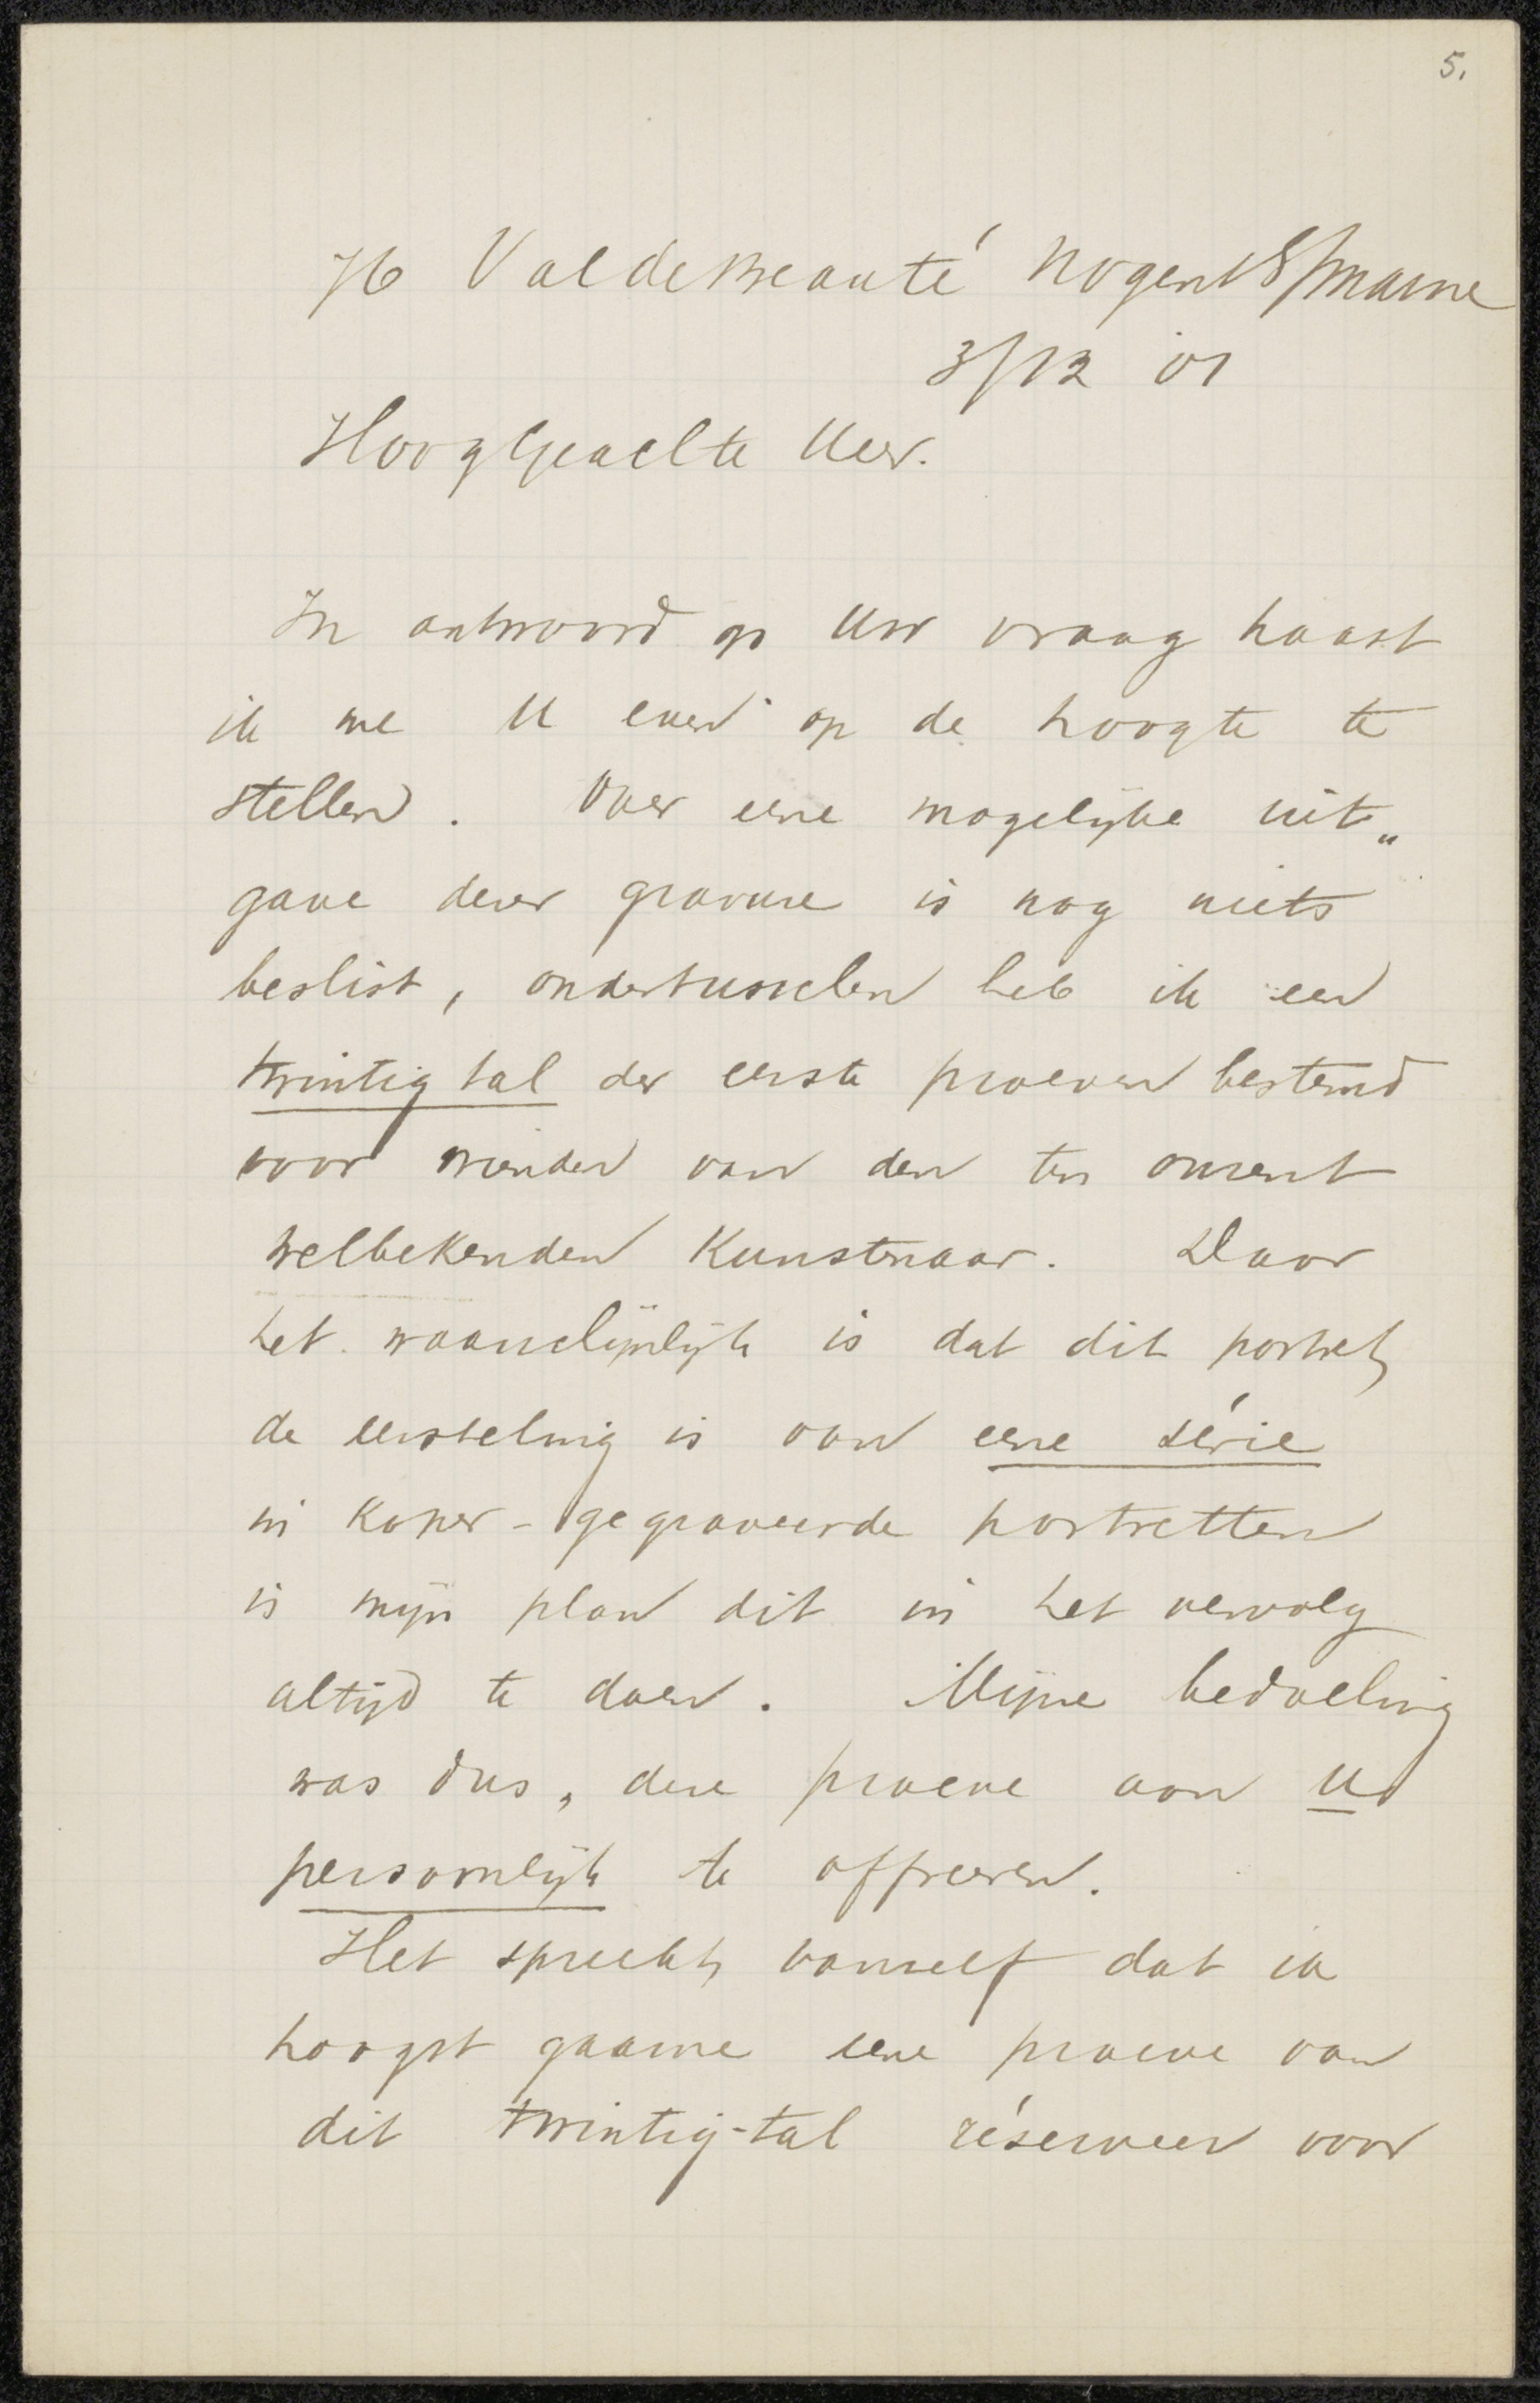 5.
76 Val de Beauté Nogent S/Marne
3/12 '01
HoogGeachte Heer.
In antwoord op Uw vraag haast
ik me U even op de hoogte te
stellen. Over eene mogelijke uit„
gave dezer gravure is nog niets
beslist, ondertusschen heb ik een
twintig tal der eerste proeven bestemd
voor vrienden van den ten onzent
welbekenden Kunstenaar. Daar
het waarschijnlijk is dat dit portret
de eersteling is van eene série
in Koper-gegraveerde portretten
is mijn plan dit in het vervolg
altijd te doen. Mijne bedoeling
was dus, deze proeve aan U
persoonlijk te offreeren.
Het spreekt vanzelf dat ik
hoogst gaarne eene proeve van
dit twintig-tal réserveer voor